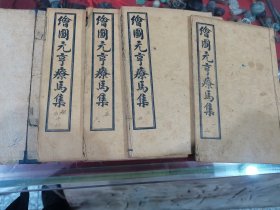 繪圖元亨療馬集
繪圖元亨療馬集
繪圖元亨療馬集
繪圖元亨療馬集